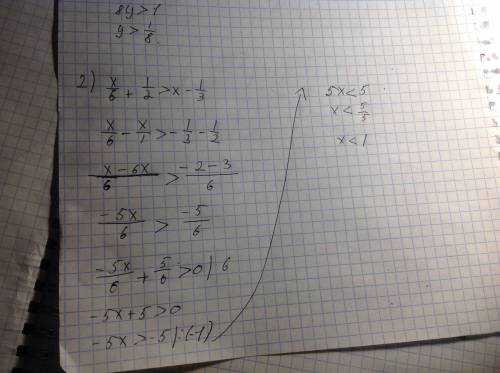 8y>1
y>1/8.
2) x/6 + 1/2 > x - 1/3
x/6 - x/1 > - 1/3 - 1/2
x-6x/6 > -2-3/6
-5x/6 > -5/6
-5x/6 + 5/6 >0 | 6
-5x+5>0
-5x>-5 |:(-1)
5x<5
x< 5/5
x<1